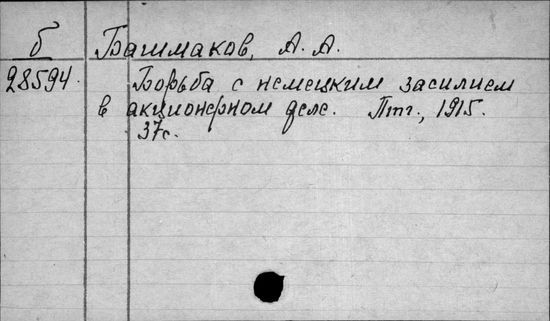 б Башмаков, А. А.
28594. Борьба с немецким засилием
в акционерном деле. Птг., 1915.
37с.